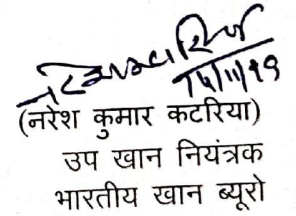 14/11/19
(नरेश कुमार कटरिया)
उप खान नियंत्रक
भारतीय खान ब्यूरो